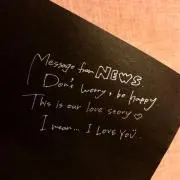 Message from NEWS.
Don't worry, be happy
This is our love story♡
I mean... I Love You..